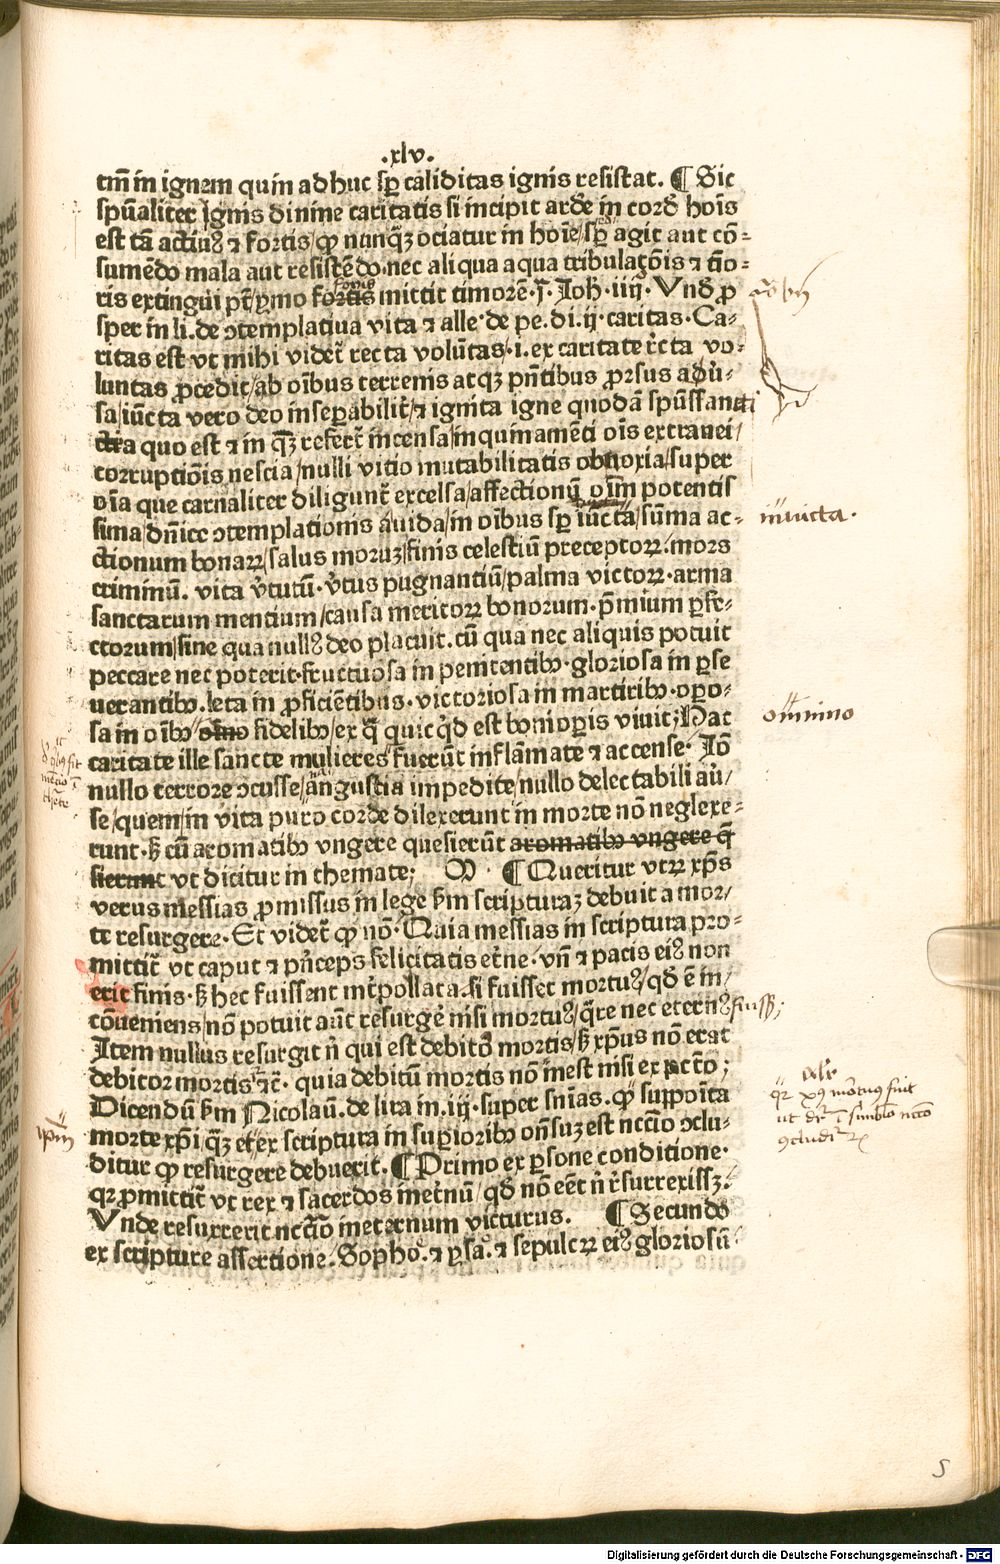 .xlv.
tm̄ in ignem quin adhuc sp̲ caliditas ignis resistat. ¶ Sic
spūaliter Ignis diuine caritatis si incipit ardē in cord̄ hoīs
est tā actiuꝰ ⁊ fortis/ꝙ nunqꝫ ociatur in hoīe/sp̲ agit aut cō-
sumēdo mala aut resistēdo.nec aliqua aqua tribulaçōis ⁊ tīo-
ris extingui pt̄/ymo fortis mittit timorē.j. Joh.iiij. Vnd̄ ꝓ
sper in li.de ↄtemplatiua vita ⁊ alle.de pe.di.ij.caritas.Ca-
ritas est vt mihi videt̄ recta volūtas.i.ex caritate r̄cta vo-
luntas ꝓcedit/ab oībus terrenis atqꝫ pn̄tibus ꝓrsus adū-
sa/iūcta vero deo inseꝑabilit̄/⁊ ignita igne quodā spūssancti
a quo est ⁊ in qꝫ refert̄ incensa/inquinamēti oīs extranei/
corruptiōis nescia/nulli vitio mutabilitatis obnoxia/super
oīa que carnaliter diligunt̄ excelsa/affectionū oīm potentis
sima/dn̄ice ↄtemplationis auida/in oībus sp̲ iūcta/sūma ac-
ctionum bonaꝝ/salus moruꝫ/finis celestiū preceptoꝝ.mors
criminū. vita v̄tutū.v̄tus pugnantiū/palma victoꝝ.arma
sanctarum mentium/causa meritoꝝ bonorum.p̄mium ꝑfe-
ctorum/sine qua nullꝰ deo placuit.cū qua nec aliquis potuit
peccare nec poterit.fructuosa in penitentibꝰ.gloriosa in ꝑse
uerantibꝰ.leta in ꝓficiētibus.victoriosa in martiribꝰ.oꝑo-
sa in oībꝰ omō fidelibꝰ/ex q̄ quicq̄d est boni oꝑis viuit/Hac
caritate ille sancte mulieres fuerūt inflāmate ⁊ accense. Iō
nullo terrore ↄcusse/angustia impedite/nullo delectabili au̇/
se/quem/in vita puro corde dilexerunt in morte nō neglexe-
runt.sꝫ cū aromatibꝰ vngere quesierūt aromatibꝰ vngere q̄
sierunt vt dicitur in themate; ¶ Queritur vtꝝ xp̄s
verus messias ꝓmissus in lege sm̄ scripturaꝫ debuit a mor/
te resurgere. Et videt̄ ꝙ nō. Quia messias in scriptura pro-
mittit̄ vt caput ⁊ pn̄ceps felicitatis et̄ne.vn̄ ⁊ pacis eiꝰ non
erit finis.sꝫ hec fuissent int̄pollata.si fuisset mortuꝰ/qd̄ ē in/
cōueniens/nō potuit aūt resurgē nisi mortuꝰ/q̄re nec eternꝰ
Item nullus resurgit n̄ qui est debitor mortis/sꝫ xp̄us nō erat
debitor mortis ⁊c̄. quia debitū mortis nō inest nisi ex pctō;
Dicendū sm̄ Nicolaū.de lira in.iij.super sn̄ias.ꝙ supposita
morte xp̄i qꝫ et ex scriptura in suꝑioribꝰ on̄suꝫ est nc̄cio ↄclu-
ditur ꝙ resurgere debuerit. ¶ Primo ex ꝑsone conditione.
qꝛ ꝓmittit̄ vt rex ⁊ sacerdos inet̄nū/qd̄ nō eēt n̄ r̄surrexissꝫ.
Vnde resurrexit nc̄cīo ineternum victurus. ¶ Secundo
ex scripture assertione. Sopho.⁊ ysa.⁊ sepulcꝝ eiꝰ gloriosū
inuicta.
omnino
S
Digitalisierung gefördert durch die Deutsche Forschungsgemeinschaft - DFG